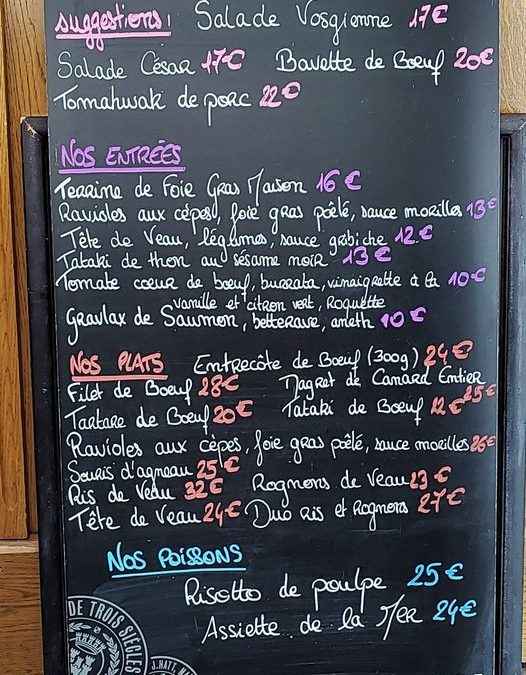 Suggestions! Salade Vosgienne 17€
Salade César 17€ Bavette de Boeuf 20€
Tomahwak de porc 22€
NOS ENTRÉES
Terrine de Foie Gras Maison 16€
Ravioles aux cèpes, foie gras poêlé, sauce morilles 13€
Tête de Veau, légumes, sauce gribiche 12€
Tataki de thon au sésame noir 13€
Tomate coeur de boeuf, burrata, vinaigrette à la 10€
vanille et citron vert, Roquette
Gravlax de Saumon, betterave, aneth 10€
NOS PLATS Entrecôte de Boeuf (300g) 24€
Filet de Boeuf 28€ Magret de Canard Entier 25€
Tartare de Boeuf 20€ Tataki de Boeuf 22€
Ravioles aux cèpes, foie gras poêlé, sauce morilles 26€
Souris d'agneau 25€
Ris de Veau 32€ Rognons de Veau 23€
Tête de Veau 24€ Duo Ris et Rognons 27€
NOS POISSONS
Risotto de poulpe 25€
Assiette de la Mer 24€
DE TROIS SIÈCLES